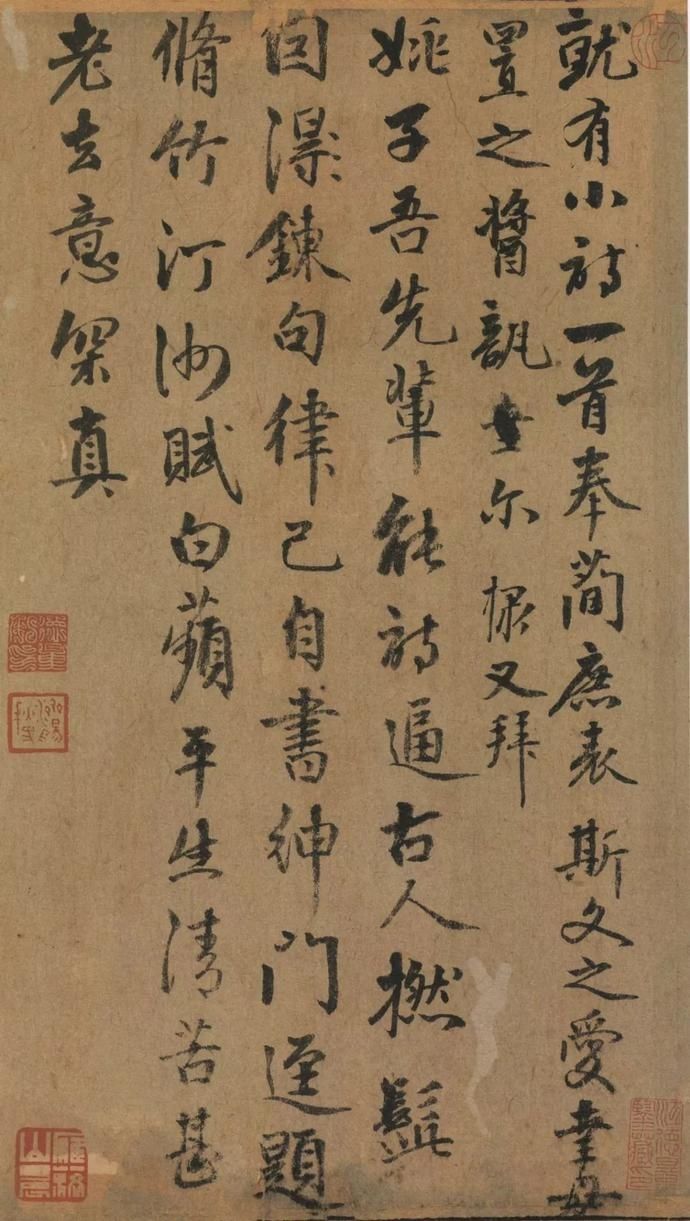 就有小詩一首奉簡庶表斯文之愛幸毋
置之醬瓿幸尔 又拜
姚子吾先輩能詩逼古人撚髭
因淂鍊句律己自書紳門逕題
脩竹汀洲賦白蘋平生清苦甚
老去意罙真